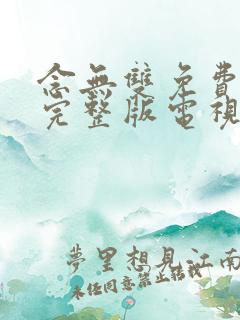 念無雙免費
完整版電視
夢里想見江南
未经同意禁止转载